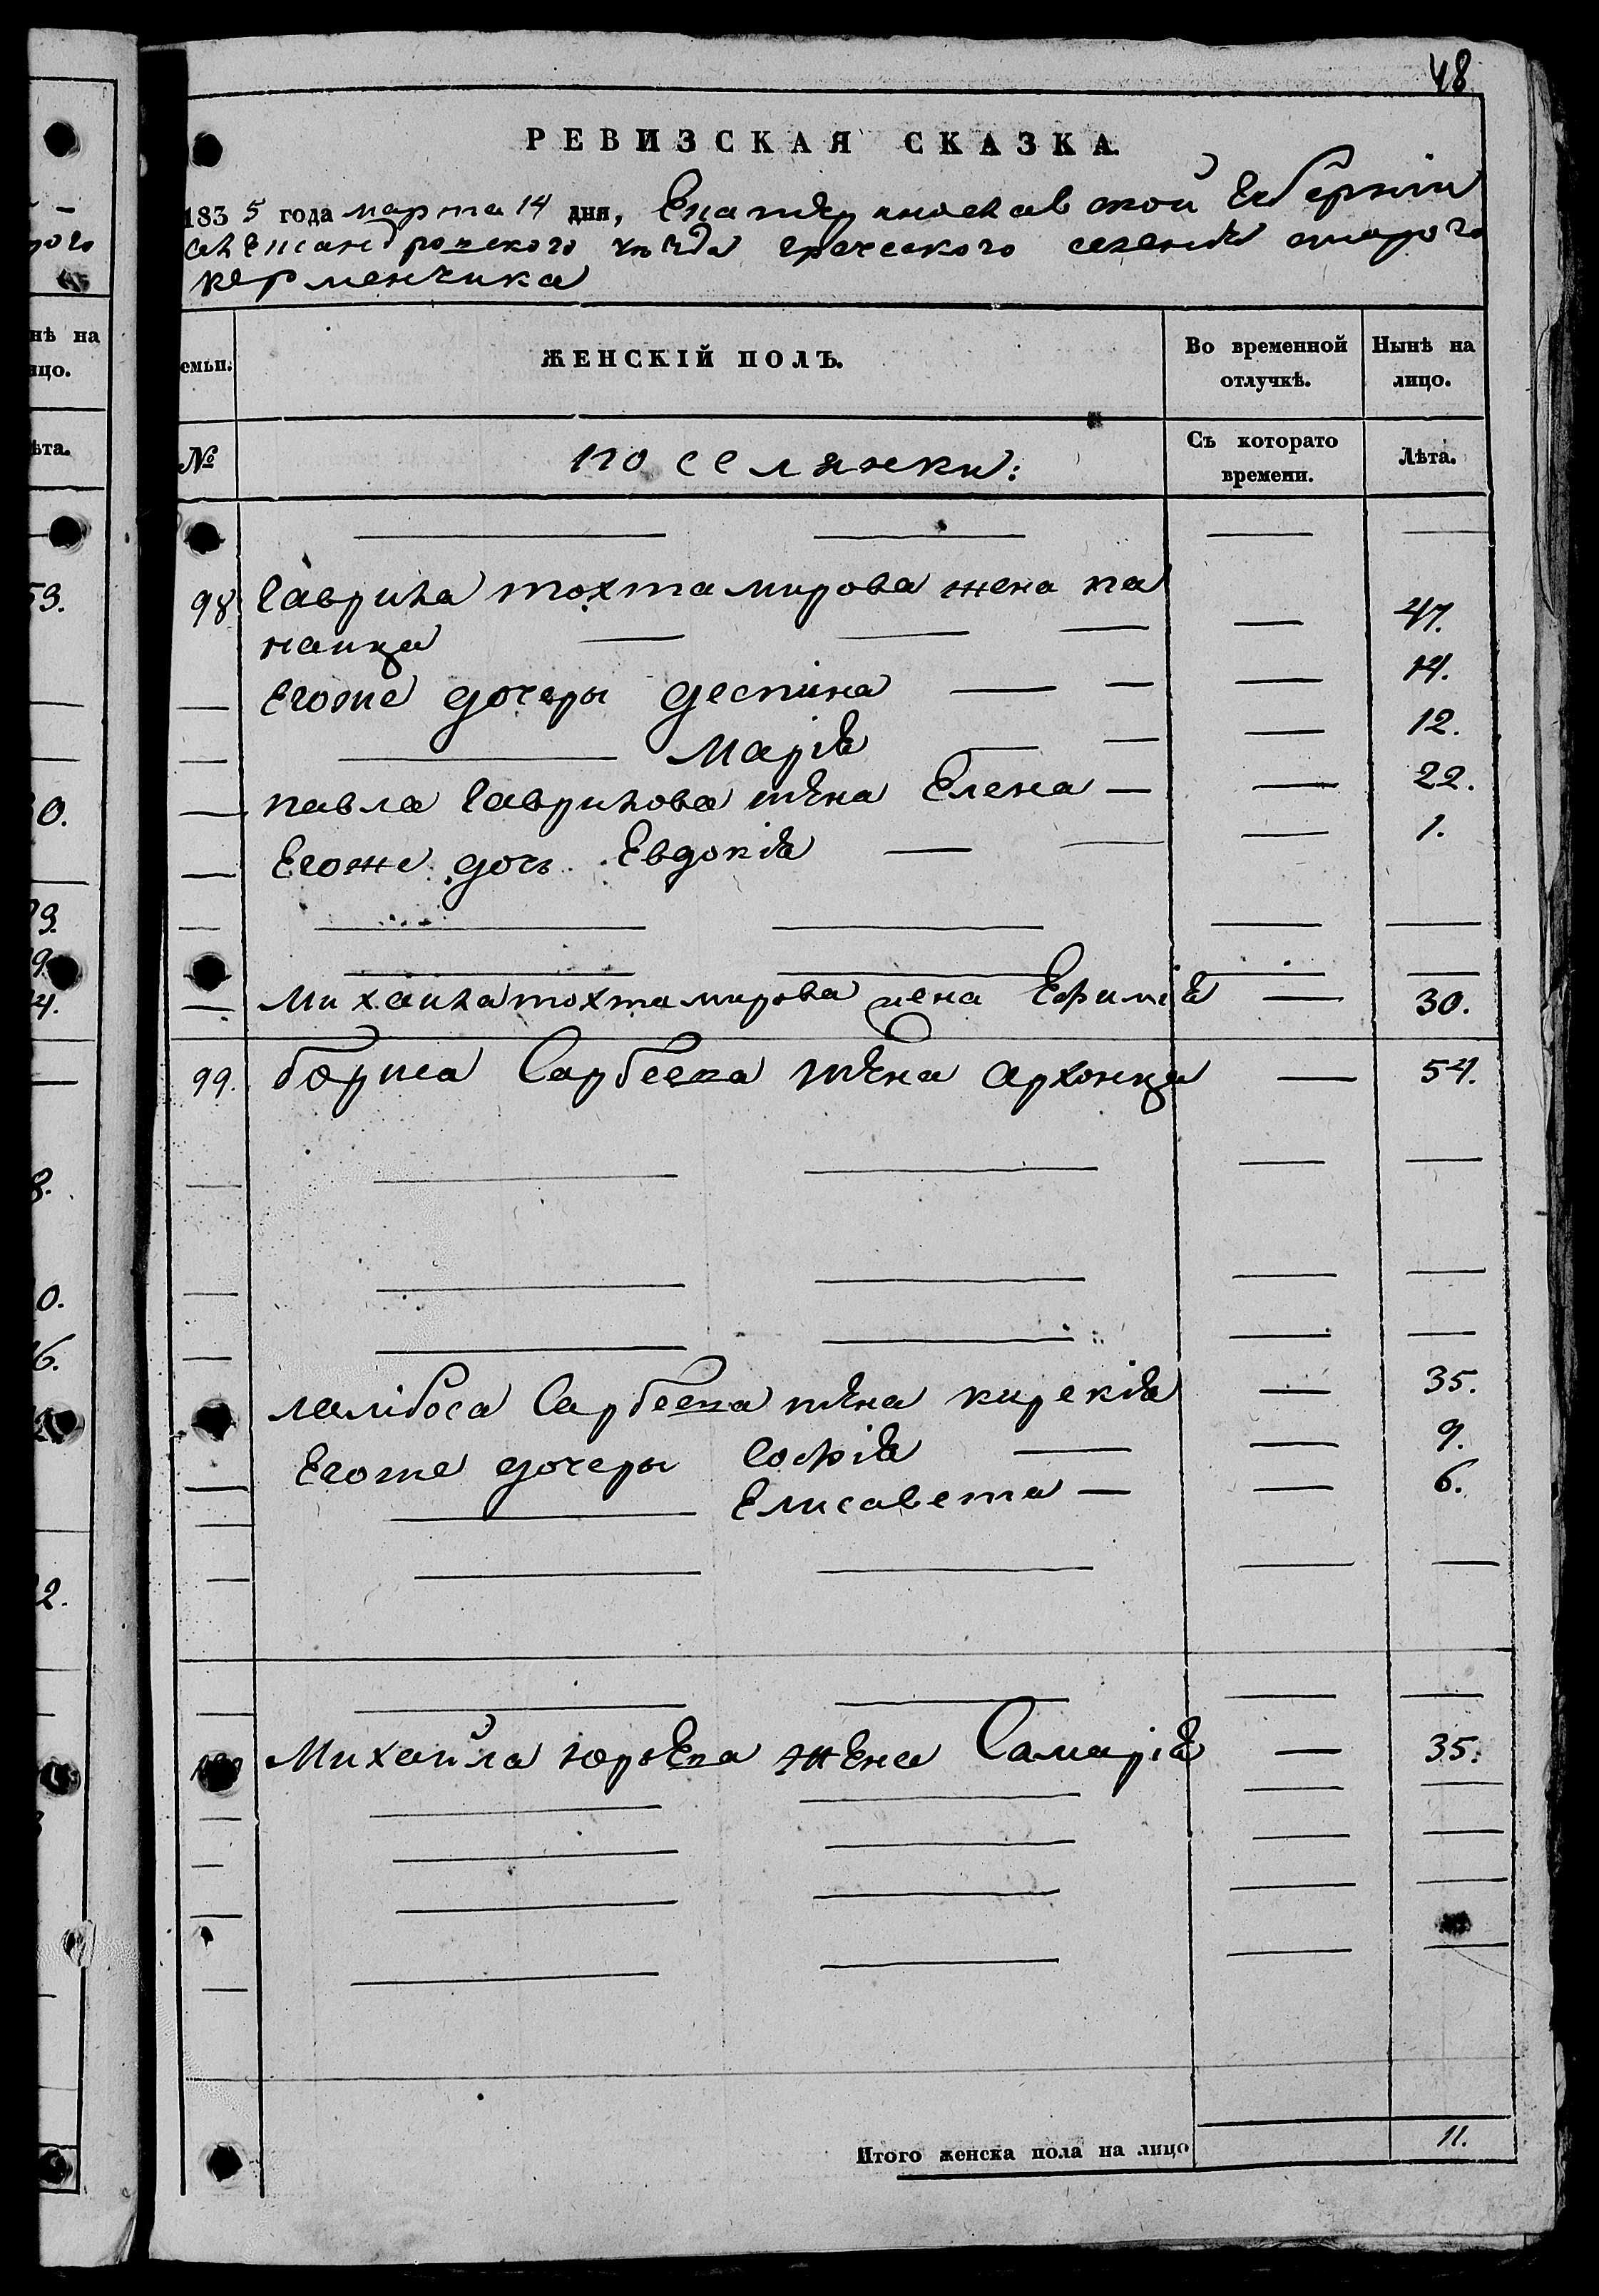 48
РЕВИЗСКАЯ СКАЗКА.
1835 года марта 14 дня, Екатеринославской Губернии
александровского уезда греческого селения старого
керменчика
емьи. ЖЕНСКІЙ ПОЛЪ. Во временной отлучкѣ. Нынѣ на лицо.
№ поселянки: Съ которато времени. Лѣта.
98 Гаврила тохтамирова жена па
наица — — — — 47.
— Егоже дочеры Деспина — — — 14.
— — Марія — — — 12.
— павла Гаврилова жена Елена — — 22.
— Егоже дочь Евдокія — — — 1.
— Михаила тохтамирова жена Ефимія — 30.
99. бориса Сарбеева жена архонца — 54.
ламбоса Сарбеева жена кирекія — 35.
— Егоже дочеры Софія — — 9.
— — Елисавета — — 6.
100 Михайла юрьева жена Самарія — 35.
Итого женска пола на лицо 11.
нѣ на
ицо.
ѣта.